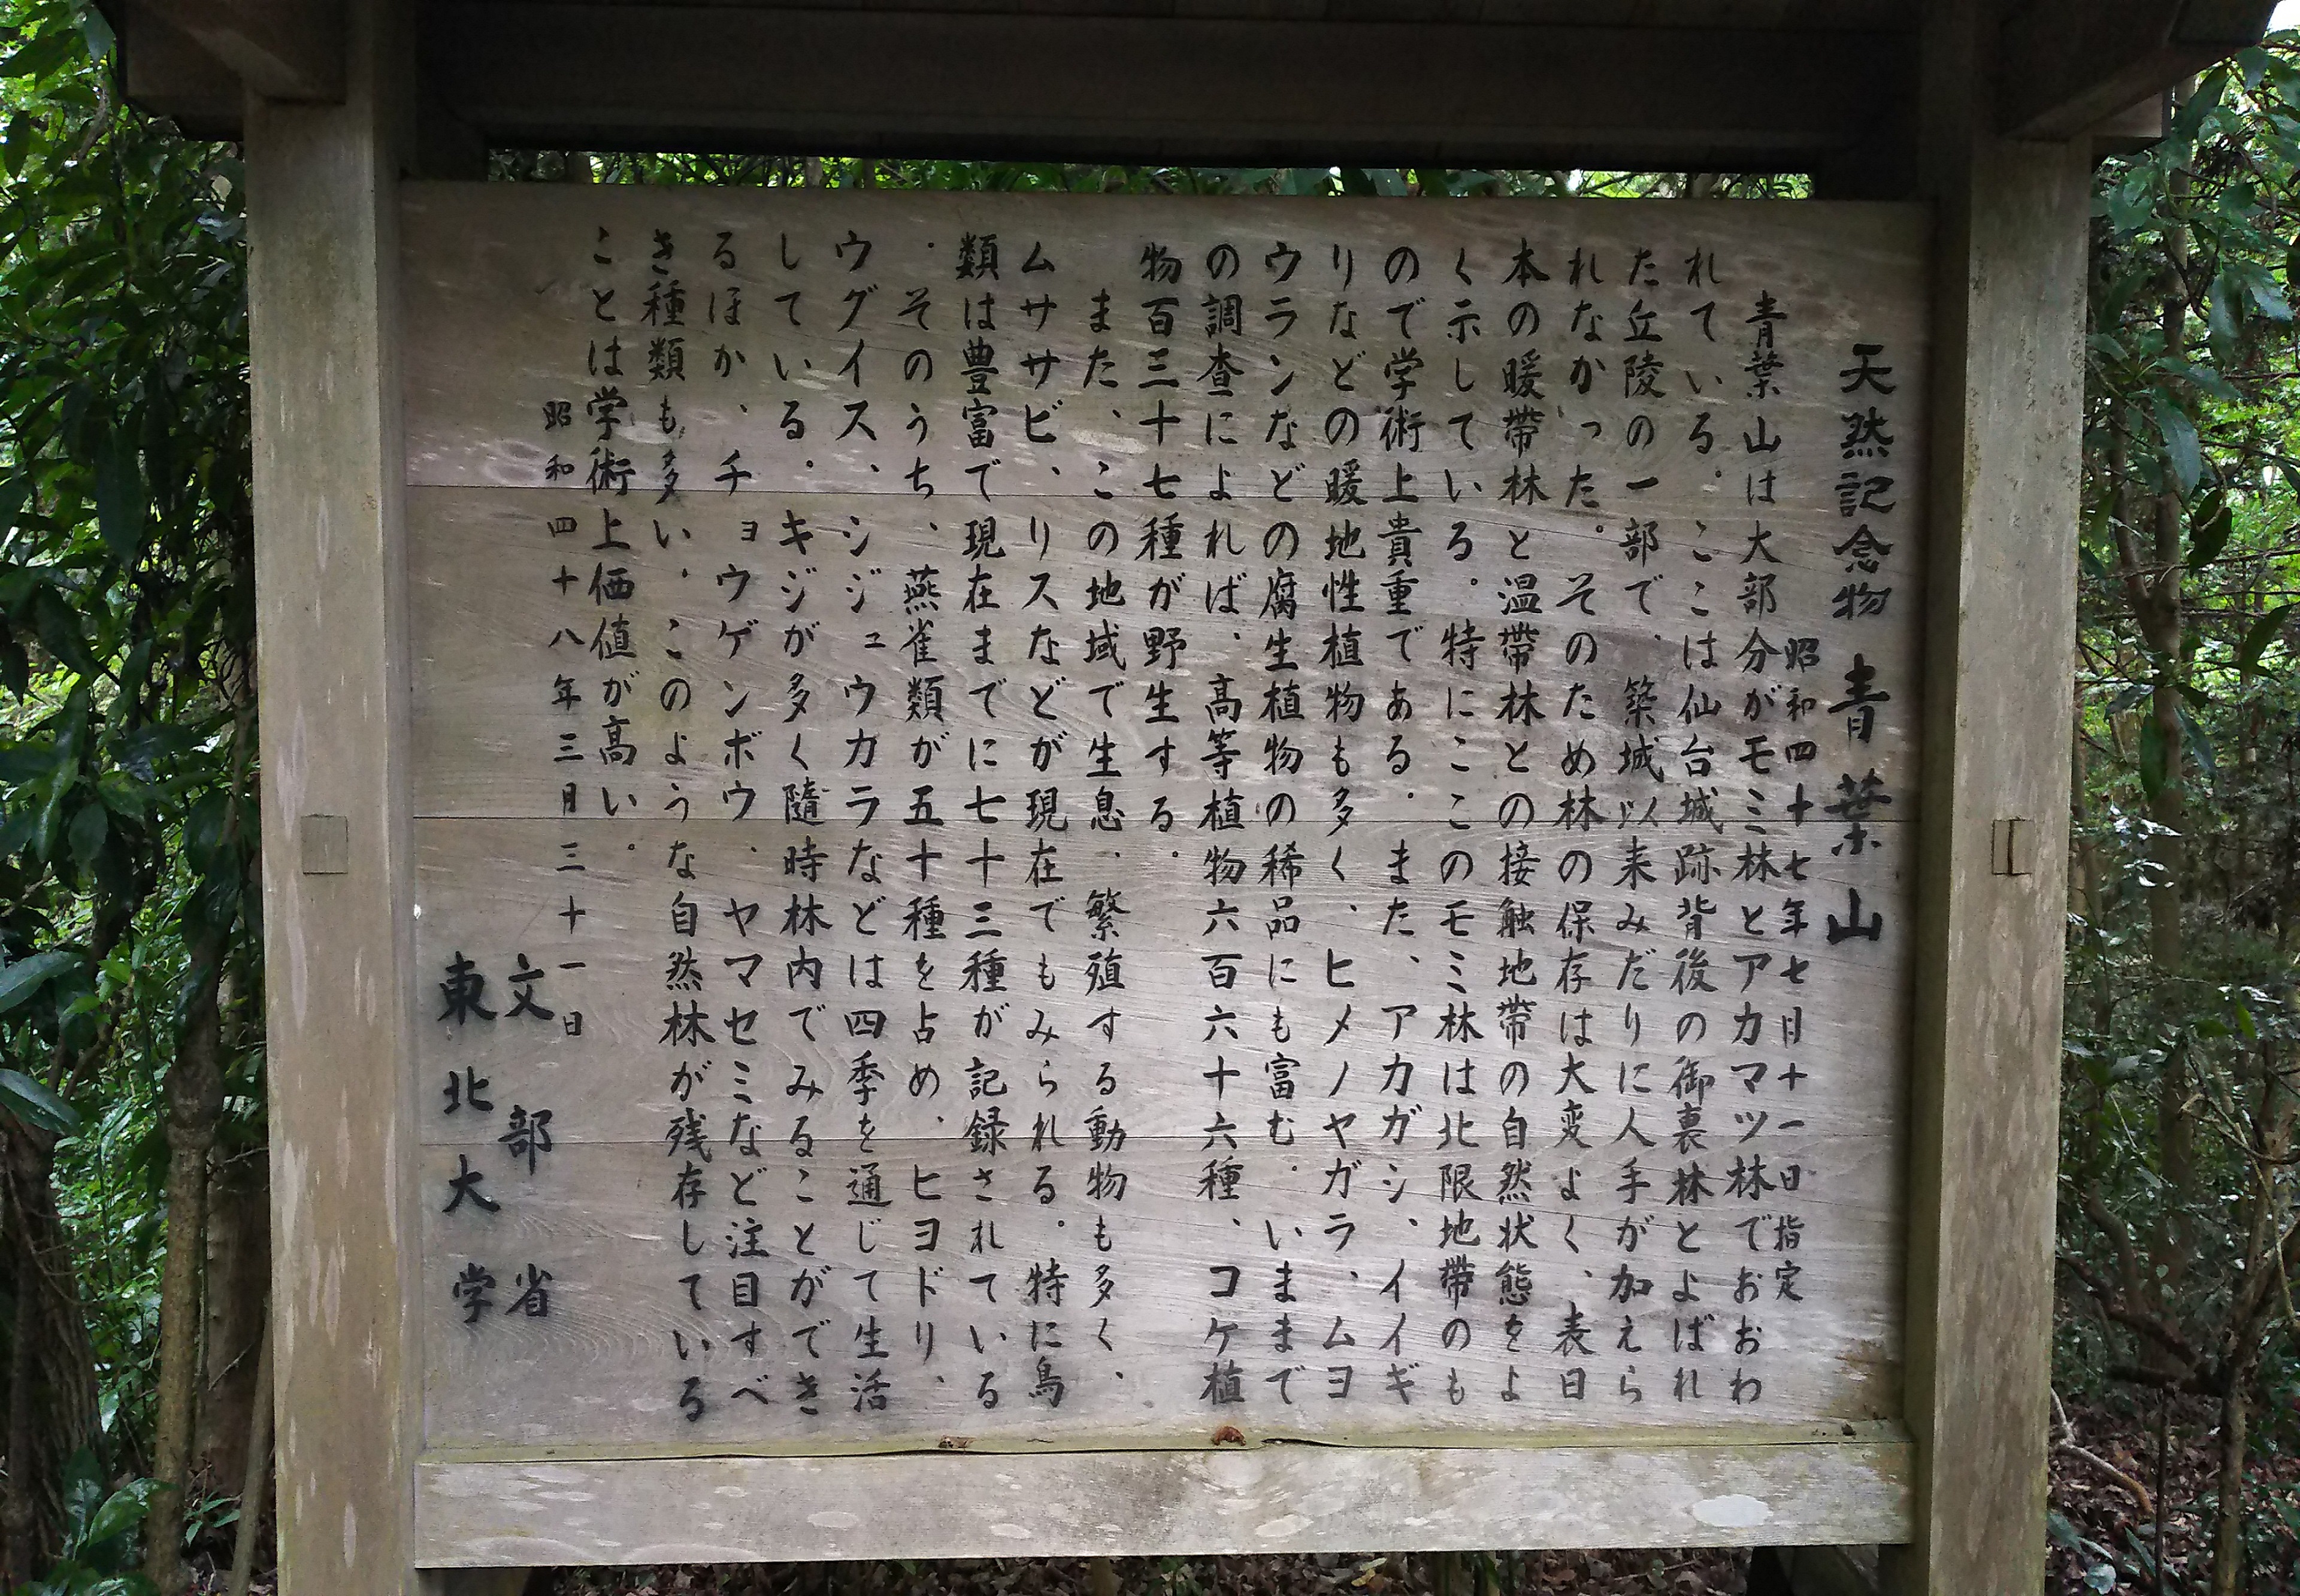 天然記念物 青葉山
昭和四十七年七月十一日指定
青葉山は大部分がモミ林とアカマツ林でおおわ
れている。ここは仙台城跡背後の御裏林とよばれ
た丘陵の一部で、築城以来みだりに人手が加えら
れなかった。そのため林の保存は大変よく、表日
本の暖帯林と温帯林との接触地帯の自然状態をよ
く示している。特にここのモミ林は北限地帯のも
ので学術上貴重である。また、アカガシ、イイギ
リなどの暖地性植物も多く、ヒメノヤガラ、ムヨ
ウランなどの腐生植物の稀品にも富む。いままで
の調査によれば、高等植物六百六十六種、コケ植
物百三十七種が野生する。
また、この地域で生息、繁殖する動物も多く、
ムササビ、リスなどが現在でもみられる。特に鳥
類は豊富で現在までに七十三種が記録されている
。そのうち、燕雀類が五十種を占め、ヒヨドリ、
ウグイス、シジュウカラなどは四季を通じて生活
している。キジが多く随時林内でみることができ
るほか、チョウゲンボウ、ヤマセミなど注目すべ
き種類も多い。このような自然林が残存している
ことは学術上価値が高い。
昭和四十八年三月三十一日
文部省
東北大学